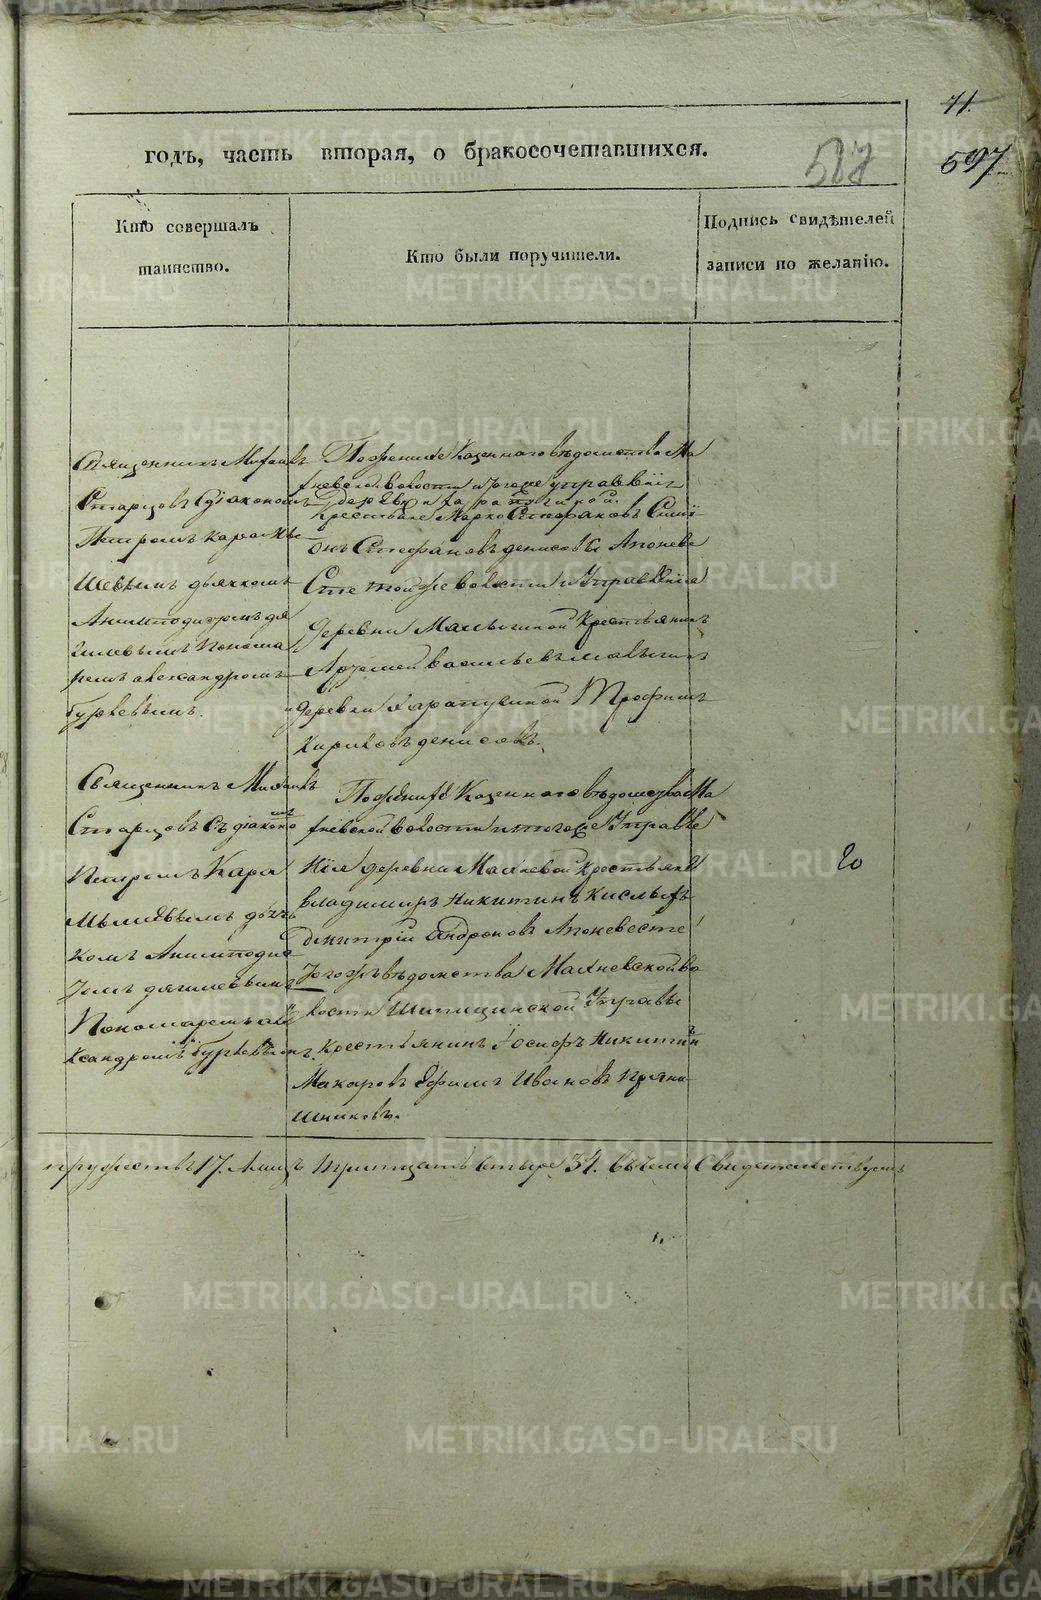 71.
годъ, часть вторая, о бракосочетавшихся.
587
597
Кто совершалъ
таинство.
Кто были поручители.
Подпись свидѣтелей
записи по желанію.
Священникъ Михаилъ
Старцовъ Съ діакономъ
Петромъ Карамы
шевымъ дьячкомъ
Антиподистомъ дя
гилевымъ Понома
ремъ александромъ
бурлевымъ.
По женихѣ Казеннаго вѣдомства Ма
хневской волости и тогоже управленія
деревни Карапугиной
крестьяне Марко Стефановъ Симі
онъ Стефановъ денисовы Апоневе
Сте тойже волости и Управленія
деревни Малыгиной Крестьянинъ
Артемей васильевъ малыгинъ
деревни Карапугиной Трофимъ
Кириловъ денисовъ.
Священникъ Михаилъ
Старцовъ Съ діаконо
мъ
Петромъ Кара
мышевымъ дьяч
комъ Антиподис
томъ дягилевымъ
Пономаремъ але
ксандромъ бурлевымъ.
По женихѣ Казеннаго вѣдомства Ма
хневской волости и тогоже Управле
нія деревни Махневой крестьяне
владимиръ Никитинъ Кислыхъ
дмитрій Андроновъ Апоневесте
Тогожъ вѣдомства Махневской во
лости Шипицинской Управы
крестьянинъ Іосифъ Никитинъ
Макаровъ Ефимъ Ивановъ Пряни
шниковъ.
20
тружествъ 17. Алицъ тритцать четыре 34. въ чемъ Свидетельствуемъ